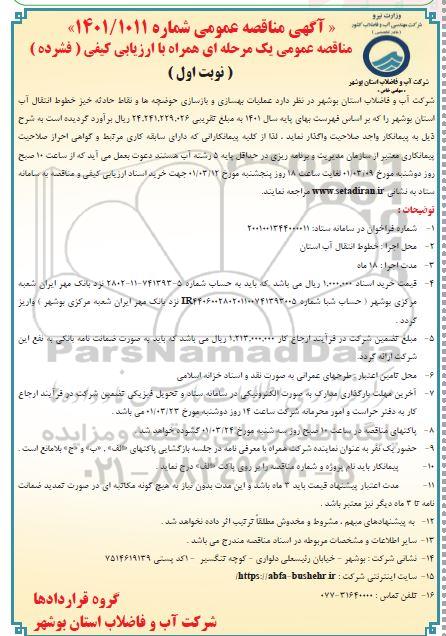 وزارت نیرو
شرکت مهندسی آب و فاضلاب کشور
شرکت آب و فاضلاب استان بوشهر
« سهامی خاص »
« آگهی مناقصه عمومی شماره ۱۴۰۱/۱۰۱۱»
مناقصه عمومی یک مرحله ای همراه با ارزیابی کیفی ( فشرده )
( نوبت اول )
شرکت آب و فاضلاب استان بوشهر در نظر دارد عملیات بهسازی و بازسازی حوضچه ها و نقاط حادثه خیز خطوط انتقال آب
استان بوشهر را که بر اساس فهرست بهای پایه سال ۱۴۰۱ به مبلغ تقریبی ۲۴.۲۴۱.۲۲۹.۰۲۶ ریال برآورد گردیده است به شرح
ذیل به پیمانکار واجد صلاحیت واگذار نماید . لذا از کلیه پیمانکارانی که دارای سابقه کاری مرتبط و گواهی احراز صلاحیت
پیمانکاری معتبر از سازمان مدیریت و برنامه ریزی در حداقل پایه ۵ رشته آب هستند دعوت بعمل می آید که از ساعت ۱۰ صبح
روز دوشنبه مورخ ۰۱/۰۳/۰۹ لغایت ساعت ۱۸ روز پنجشنبه مورخ ۰۱/۰۳/۱۲ جهت خرید اسناد ارزیابی کیفی و مناقصه به سامانه
ستاد به نشانی www.setadiran.ir مراجعه نمایند.
توضیحات :
۱- شماره فراخوان در سامانه ستاد: ۲۰۰۱۰۰۱۳۴۴۰۰۰۰۱۱
۲- محل اجرا : خطوط انتقال آب استان
۳- مدت اجرا : ۱۸ ماه
۴- قیمت خرید اسناد ۱.۰۰۰.۰۰۰ ریال می باشد .که باید به حساب شماره ۵-۷۴۱۳۹۳-۱۱-۲۸۰۲ نزد بانک مهر ایران شعبه
مرکزی بوشهر ( حساب شبا شماره IR۴۴۰۶۰۰۲۸۰۲۰۱۱۰۰۷۴۱۳۹۳۰۰۵ نزد بانک مهر ایران شعبه مرکزی بوشهر ) واریز
گردد .
۵- مبلغ تضمین شرکت در فرآیند ارجاع کار ۱.۲۱۳.۰۰۰.۰۰۰ ریال می باشد که باید به صورت ضمانت نامه بانکی به نفع این
شرکت ارائه گردد.
۶- محل تامین اعتبار : طرحهای عمرانی به صورت نقد و اسناد خزانه اسلامی
۷- آخرین مهلت بارگذاری مدارک به صورت الکترونیکی در سامانه ستاد و تحویل فیزیکی تضمین شرکت در فرآیند ارجاع
کار به دفتر حراست و امور محرمانه شرکت ساعت ۱۴ روز دوشنبه مورخ ۰۱/۰۳/۲۳ می باشد .
۸- پاکتهای مناقصه در ساعت ۱۰ صبح روز سه شنبه مورخ ۰۱/۰۳/۲۴ گشوده خواهد شد.
۹- حضور یک نفر به عنوان نماینده شرکت همراه با معرفی نامه در جلسه بازگشایی پاکتهای «الف» ، «ب» و «ج» بلامانع است .
۱۰- پیمانکار باید نام پروژه و شماره مناقصه را بر روی پاکت «الف» درج نماید .
۱۱- مدت اعتبار پیشنهاد قیمت باید ۳ ماه باشد و این مدت بدون نیاز به هیچ گونه مکاتبه ای در صورت تمدید ضمانت
نامه تا ۳ ماه دیگر نیز معتبر باشد .
۱۲- به پیشنهادهای مبهم ، مشروط و مخدوش مطلقاً ترتیب اثر داده نخواهد شد .
۱۳- سایر اطلاعات و مشخصات مربوطه در اسناد مناقصه مندرج می باشد .
۱۴- نشانی شرکت : بوشهر – خیابان رئیسعلی دلواری – کوچه تنگسیر – کد پستی ۷۵۱۴۶۱۹۱۳۹
۱۵- سایت اینترنتی شرکت : https://abfa-bushehr.ir/
۱۶- تلفن تماس : ۳۱۶۴۰۰۰۰-۰۷۷
گروه قراردادها
شرکت آب و فاضلاب استان بوشهر
ParsNamadData